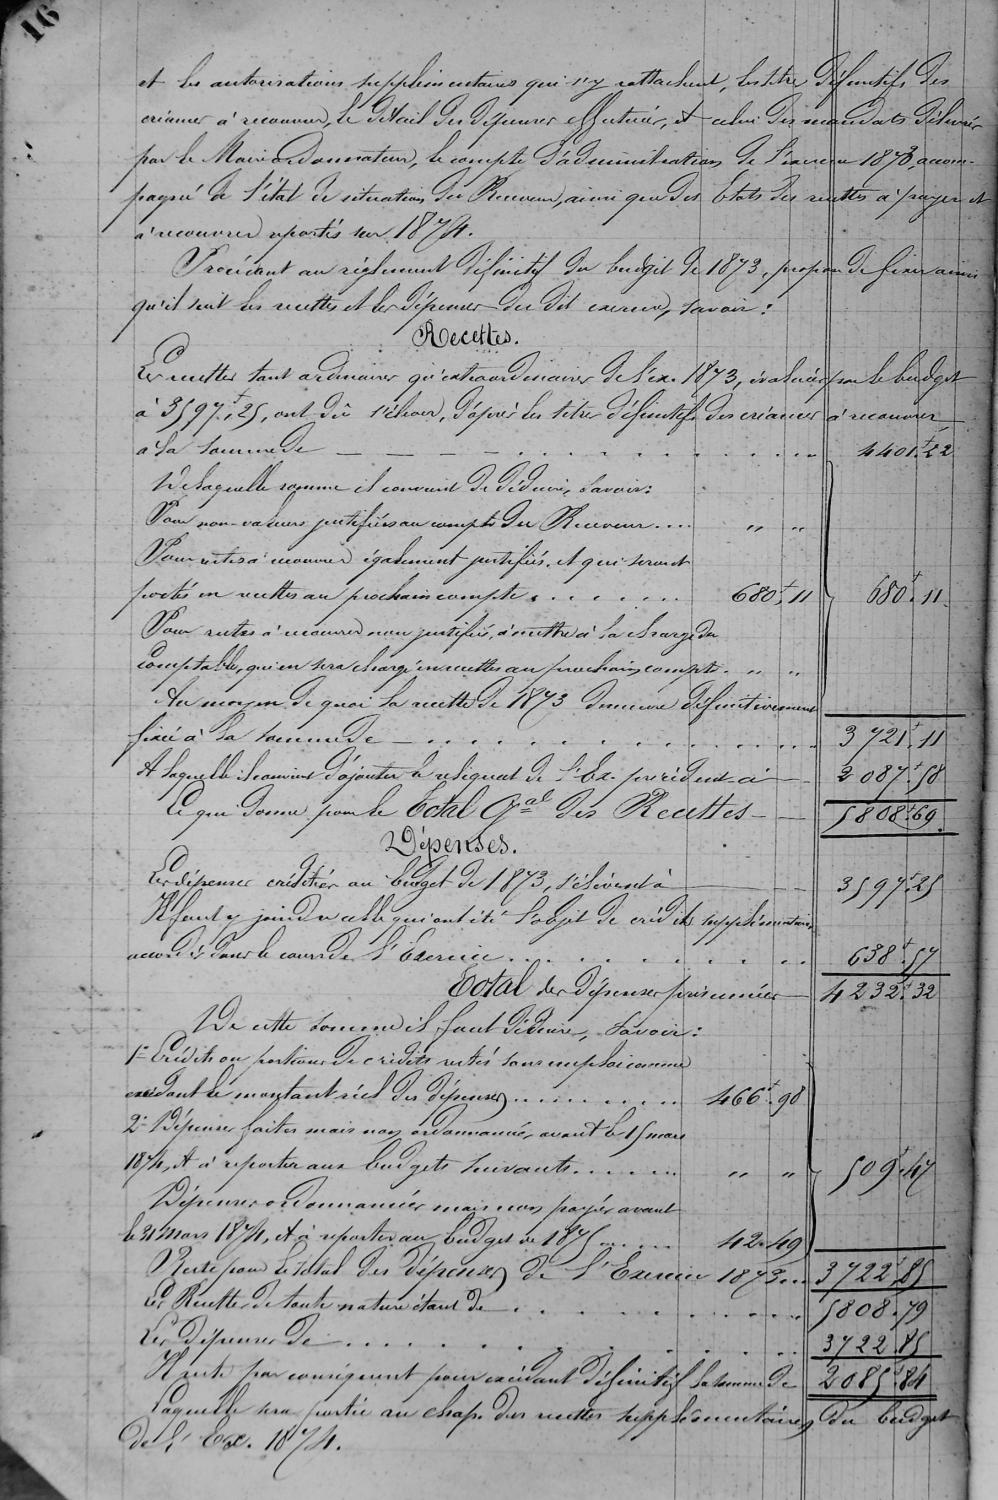 16
et les autorisations supplémentaires qui s'y rattachent, les titres définitifs des
créances à recouvrer, le détail des dépenses effectuées, et celui des mandats délivrés
par le Maire ordonnateur, le compte d'administration de l'exercice 1873, accom-
pagné de l'état de situation du Receveur, ainsi que des Etats des restes à payer et
à recouvrer reportés sur 1874.
Procédant au règlement définitif du budget de 1873, propose de fixer ainsi
qu'il suit les recettes et les dépenses du dit exercice, savoir :
Recettes.
Les recettes tant ordinaires qu'extraordinaires de l'ex. 1873, évaluées par le budget
à 3597f,25, ont dû s'élever, d'après les titres définitifs des créances à recouvrer
à la somme de 4401f.22
De laquelle somme il convient de déduire, savoir :
Pour non-valeurs justifiées au compte du Receveur .... " "
Pour restes à recouvrer également justifiés, et qui seront
portés en recettes au prochain compte ....... 680f,11 680f.11
Pour restes à recouvrer non justifiés, à mettre à la charge du
Comptable, qui en sera chargé en recettes au prochain compte. " "
Au moyen de quoi la recette de 1873 demeure définitivement
fixée à la somme de 3721f.11
A laquelle il convient d'ajouter le reliquat de l'Ex. précédent à 2087f.58
Ce qui donne pour le Total Gal des Recettes 5808f.69
Dépenses.
Les dépenses créditées au budget de 1873, s'élèvent à 3597f.25
Il faut y joindre celles qui ont été l'objet de crédits supplémentaires
accordés dans le cours de l'Exercice 638f.57
Total des dépenses présumées 4232f.32
De cette somme il faut déduire, savoir :
1° Crédits ou portions de crédits restés sans emploi comme
excédant le montant réel des dépenses ......... 466f.98
2° Dépenses faites mais non ordonnancées avant le 15 mars
1874, et à reporter aux budgets suivants ...... " " 509f.47
Dépenses ordonnancées mais non payées avant
le 31 mars 1874, et à reporter au budget de 1875 ..... 42.49
Reste pour le total des dépenses de l'Exercice 1873 ... 3722f.85
Les Recettes de toute nature étant de 5808.79
Les dépenses de 3722.85
Il reste par conséquent pour excédant définitif la somme de 2085f.84
Laquelle sera portée au chap. des recettes supplémentaires du budget
de l'Ex. 1874.